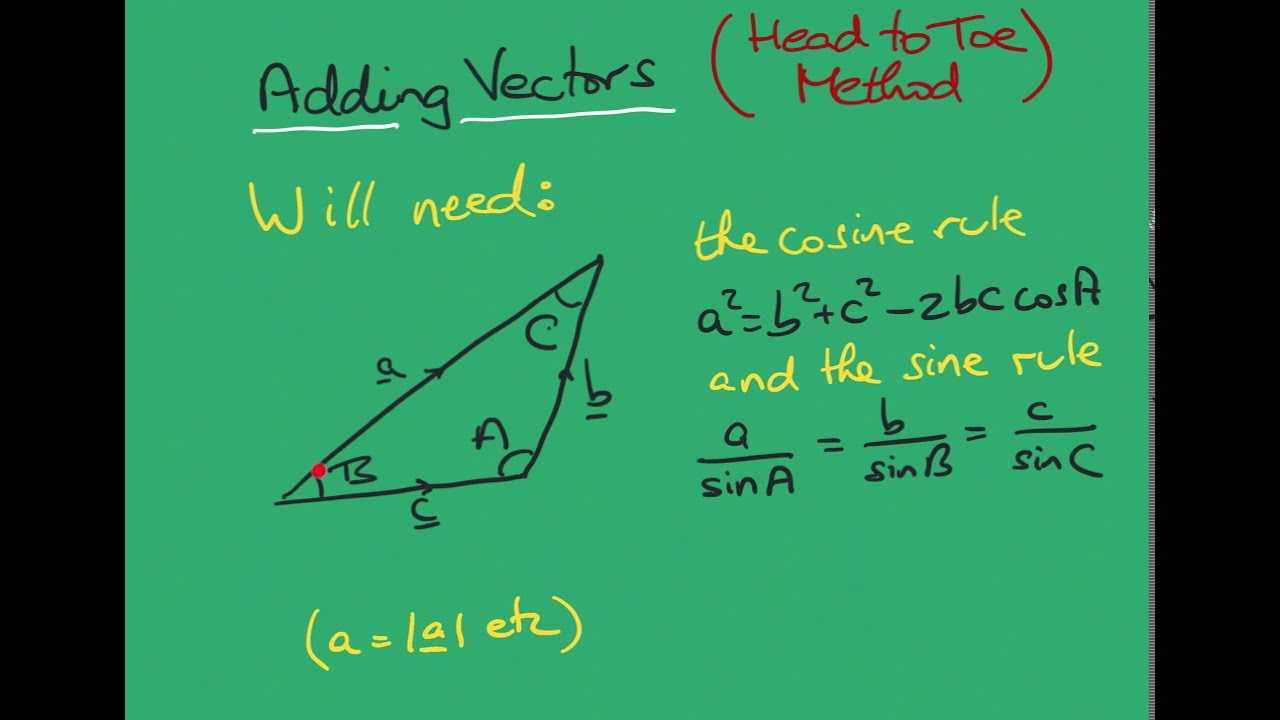 Adding Vectors
(Head to Toe
Method)
Will need:
the cosine rule
a² = b² + c² - 2bc cos A
and the sine rule
a/sin A = b/sin B = c/sin C
C
a
b
A
B
c
(a = |a| etc)